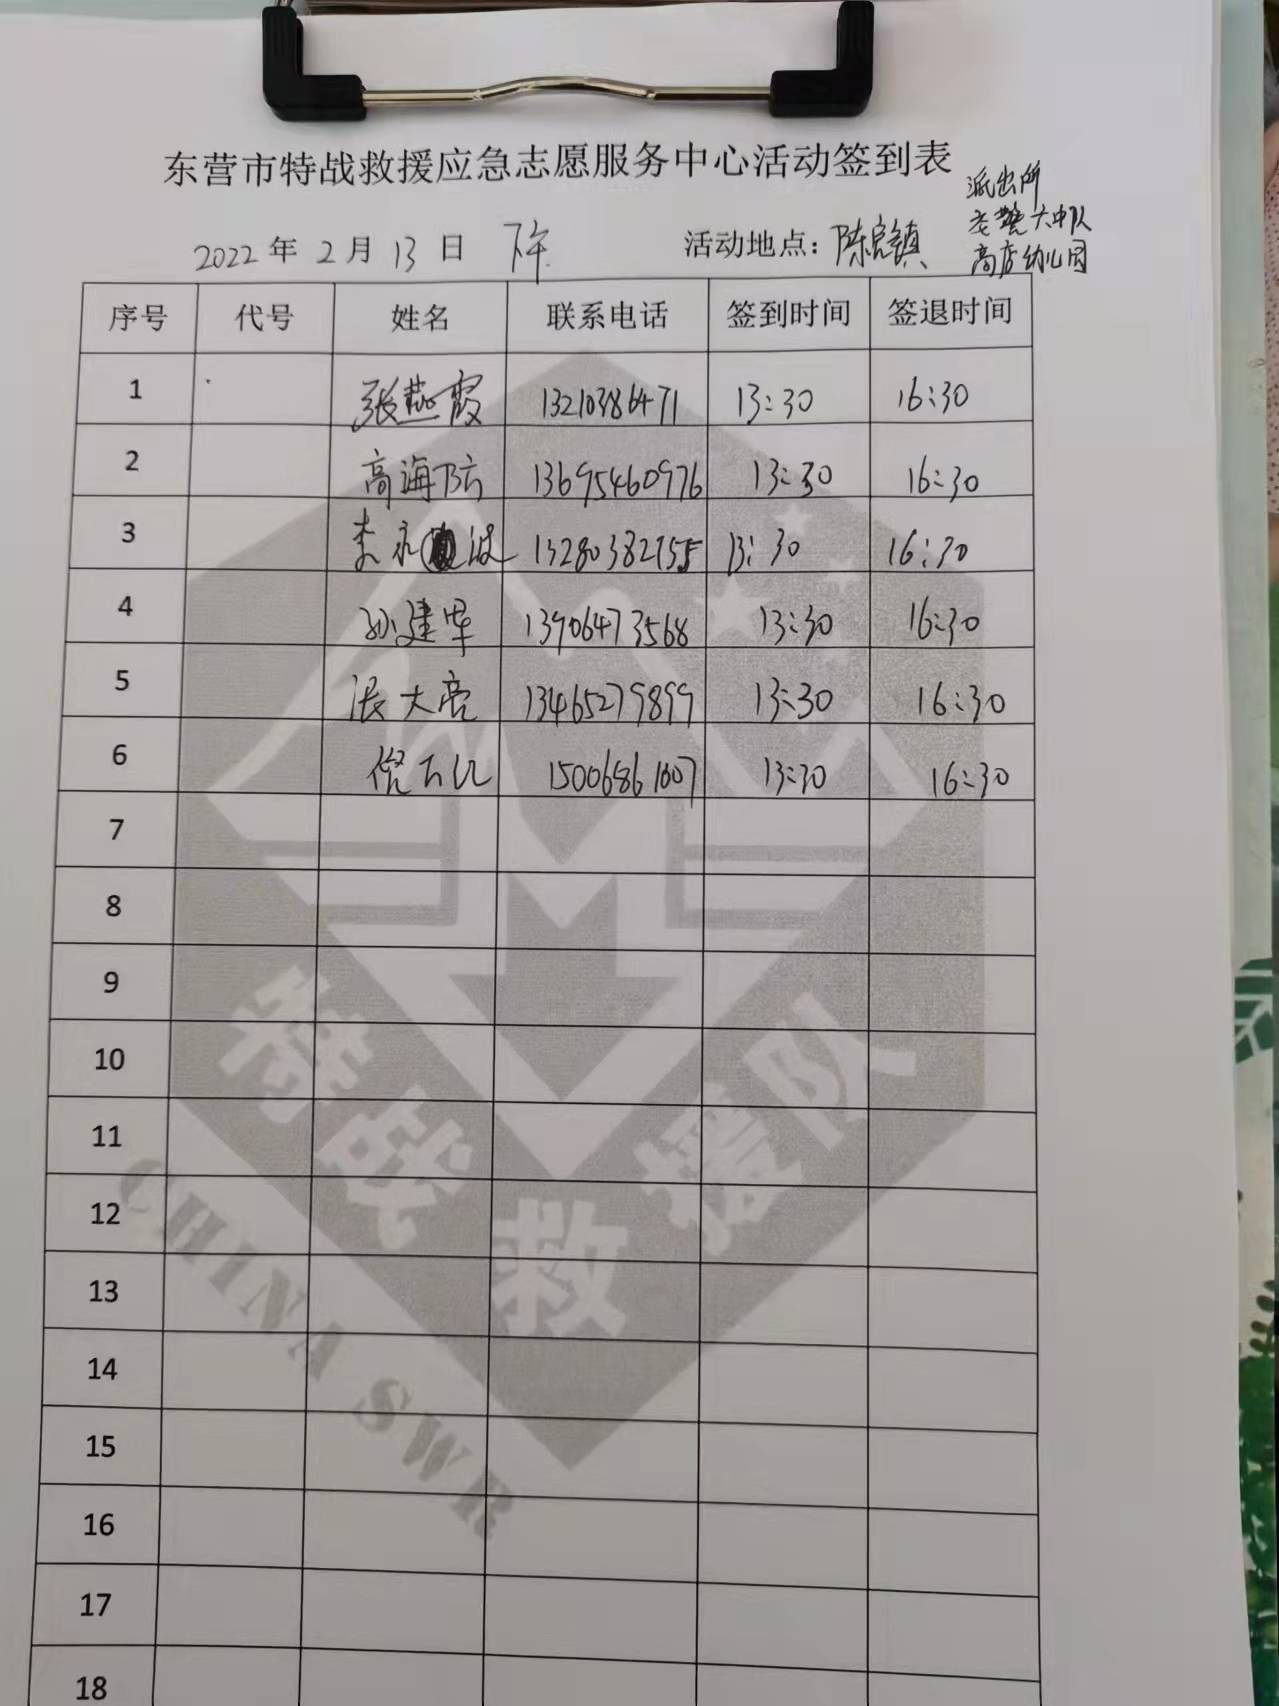 东营市特战救援应急志愿服务中心活动签到表
派出所
交警大中队
高店幼儿园
2022年2月13日 下午 活动地点：陈官镇
序号 代号 姓名 联系电话 签到时间 签退时间
1 张燕霞 13210386471 13:30 16:30
2 高海防 13695460976 13:30 16:30
3 李永波 13280382755 13:30 16:30
4 孙建军 13906473568 13:30 16:30
5 张大亮 13465279899 13:30 16:30
6 15006861007 13:30 16:30
7
8
9
10
11
12
13
14
15
16
17
18
特战救援队
CHINA SWR